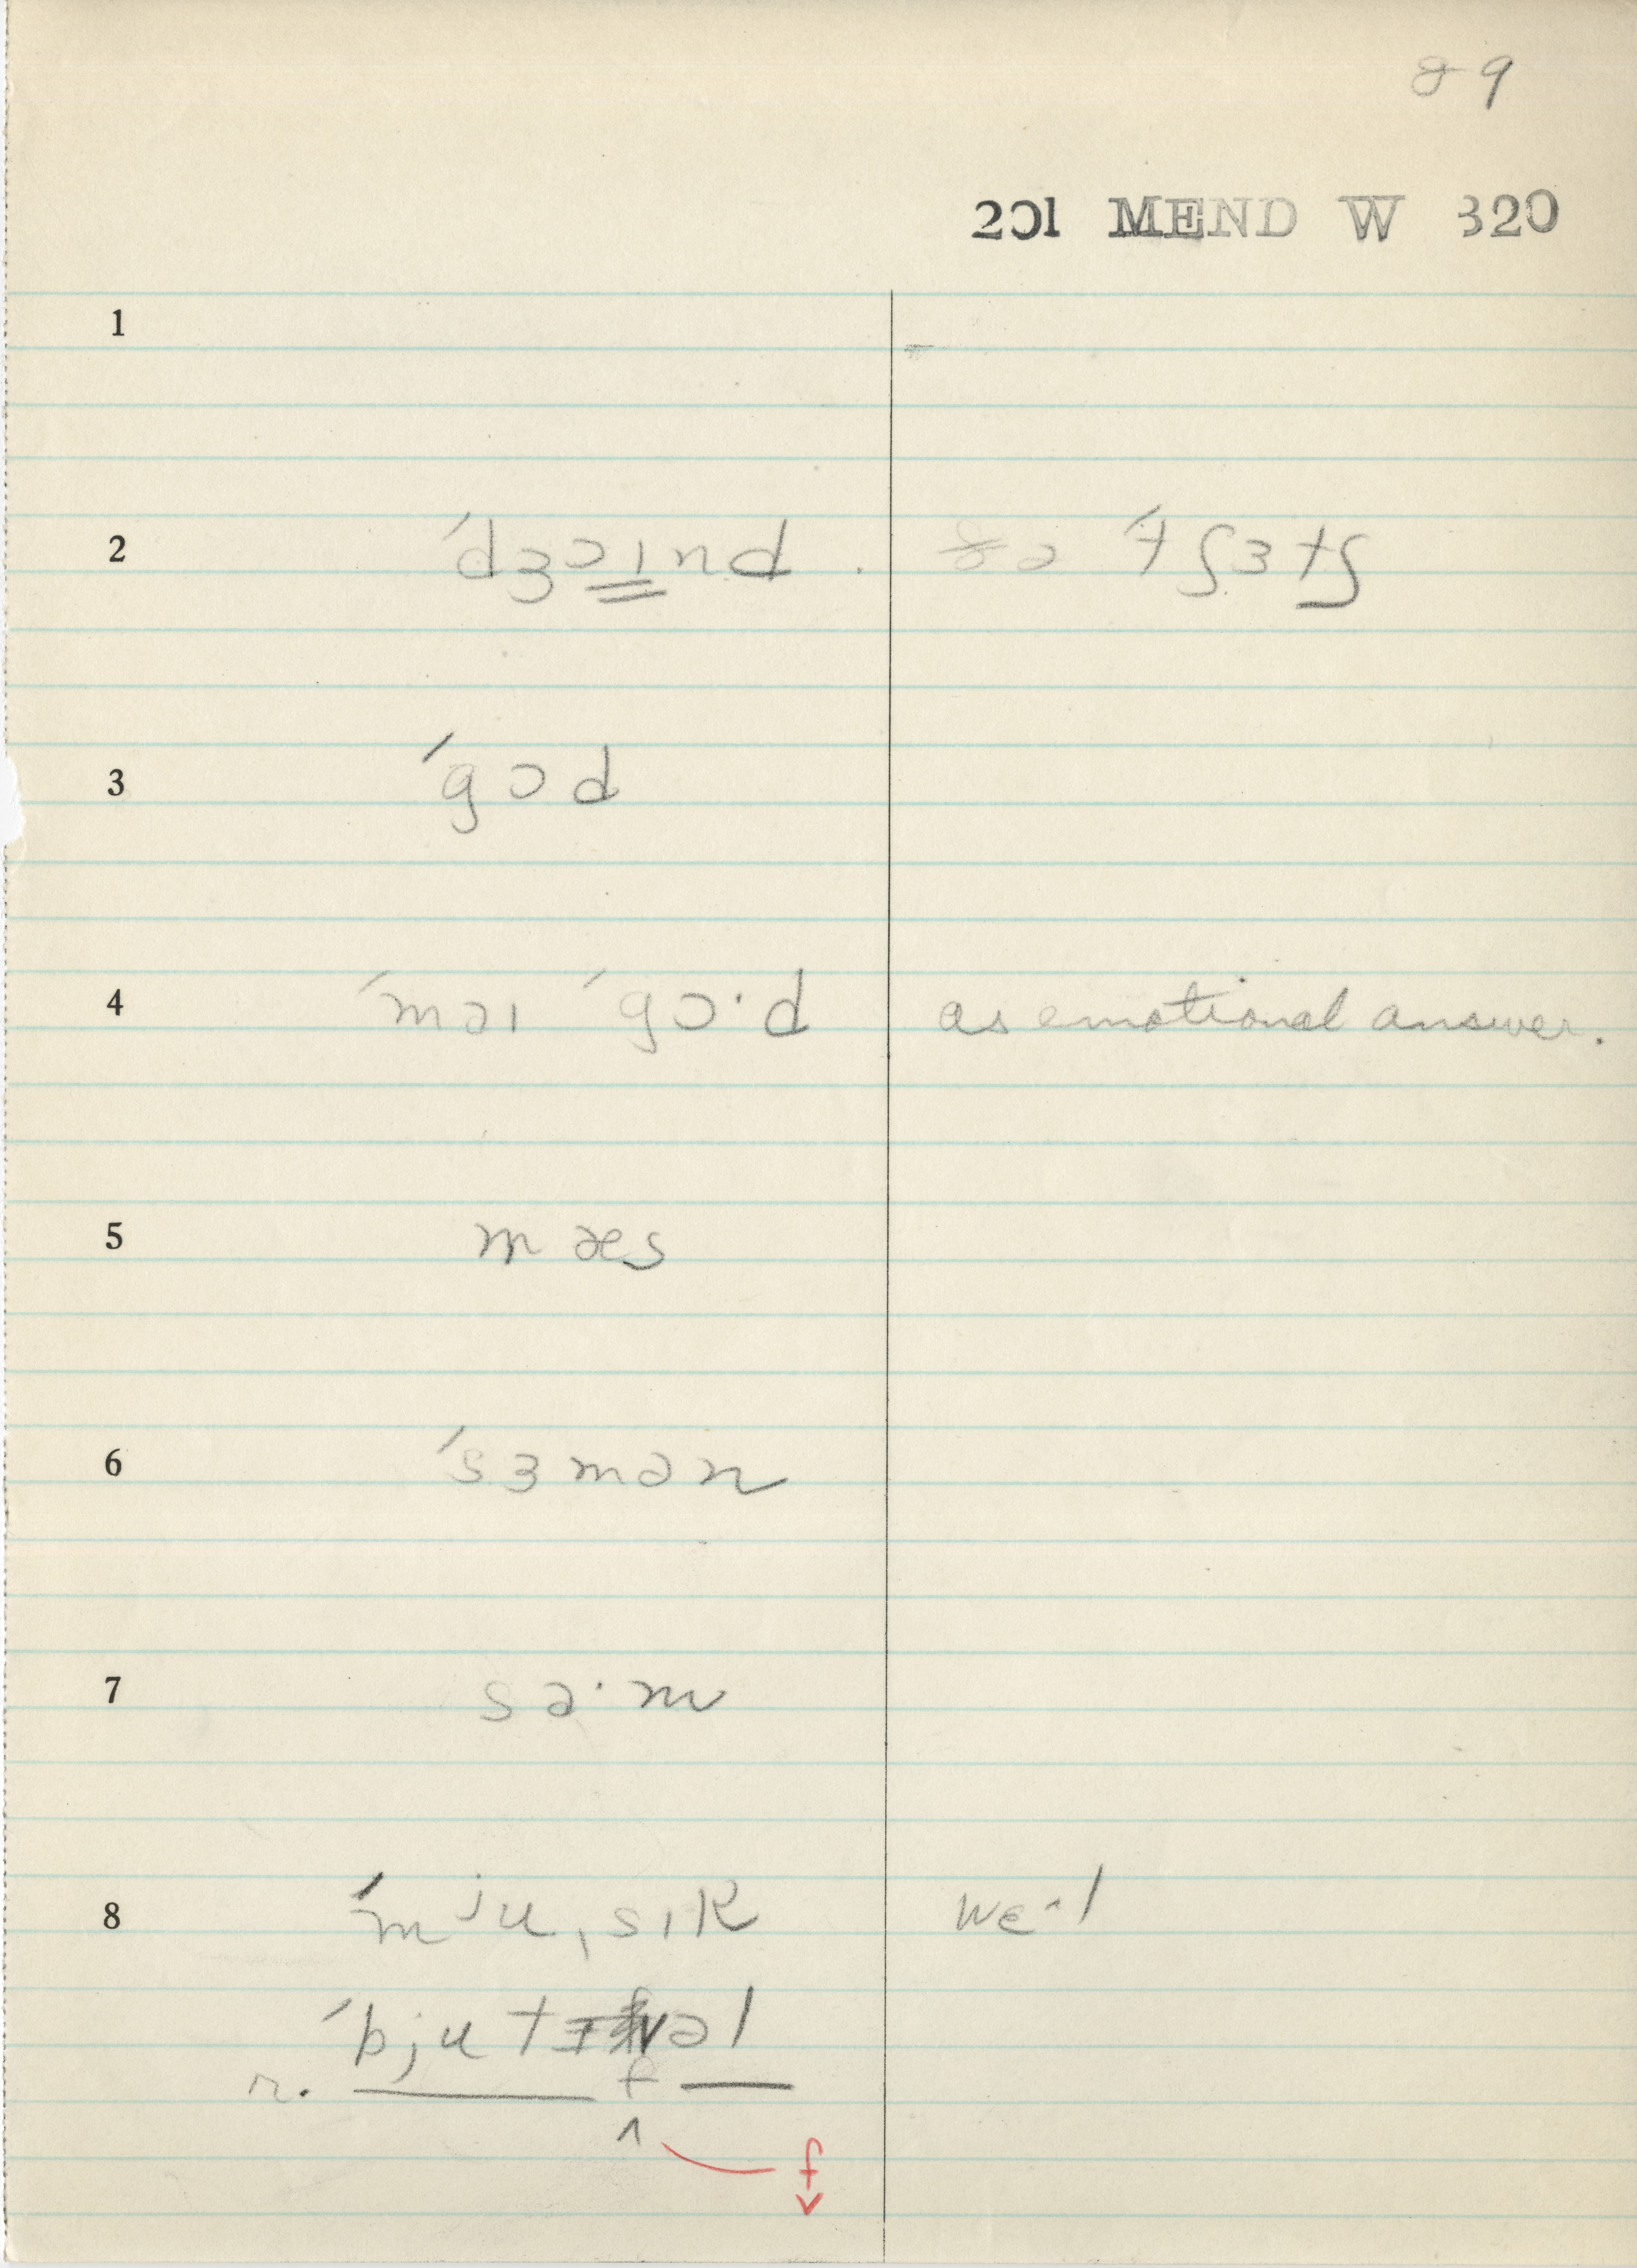 89
201 MEND W 320
1
2 ˊdʒɔɪnd . ðə ˊtʃɜtʃ
3 ˊgɔd
4 ˊməɪ ˊgɔ·d as emotional answer.
5 mæs
6 ˊsɜmən
7 sɑ·m
8 ˊmju,sɪk wɛ·l
ˊbjutɪfəl
r. f
^ f